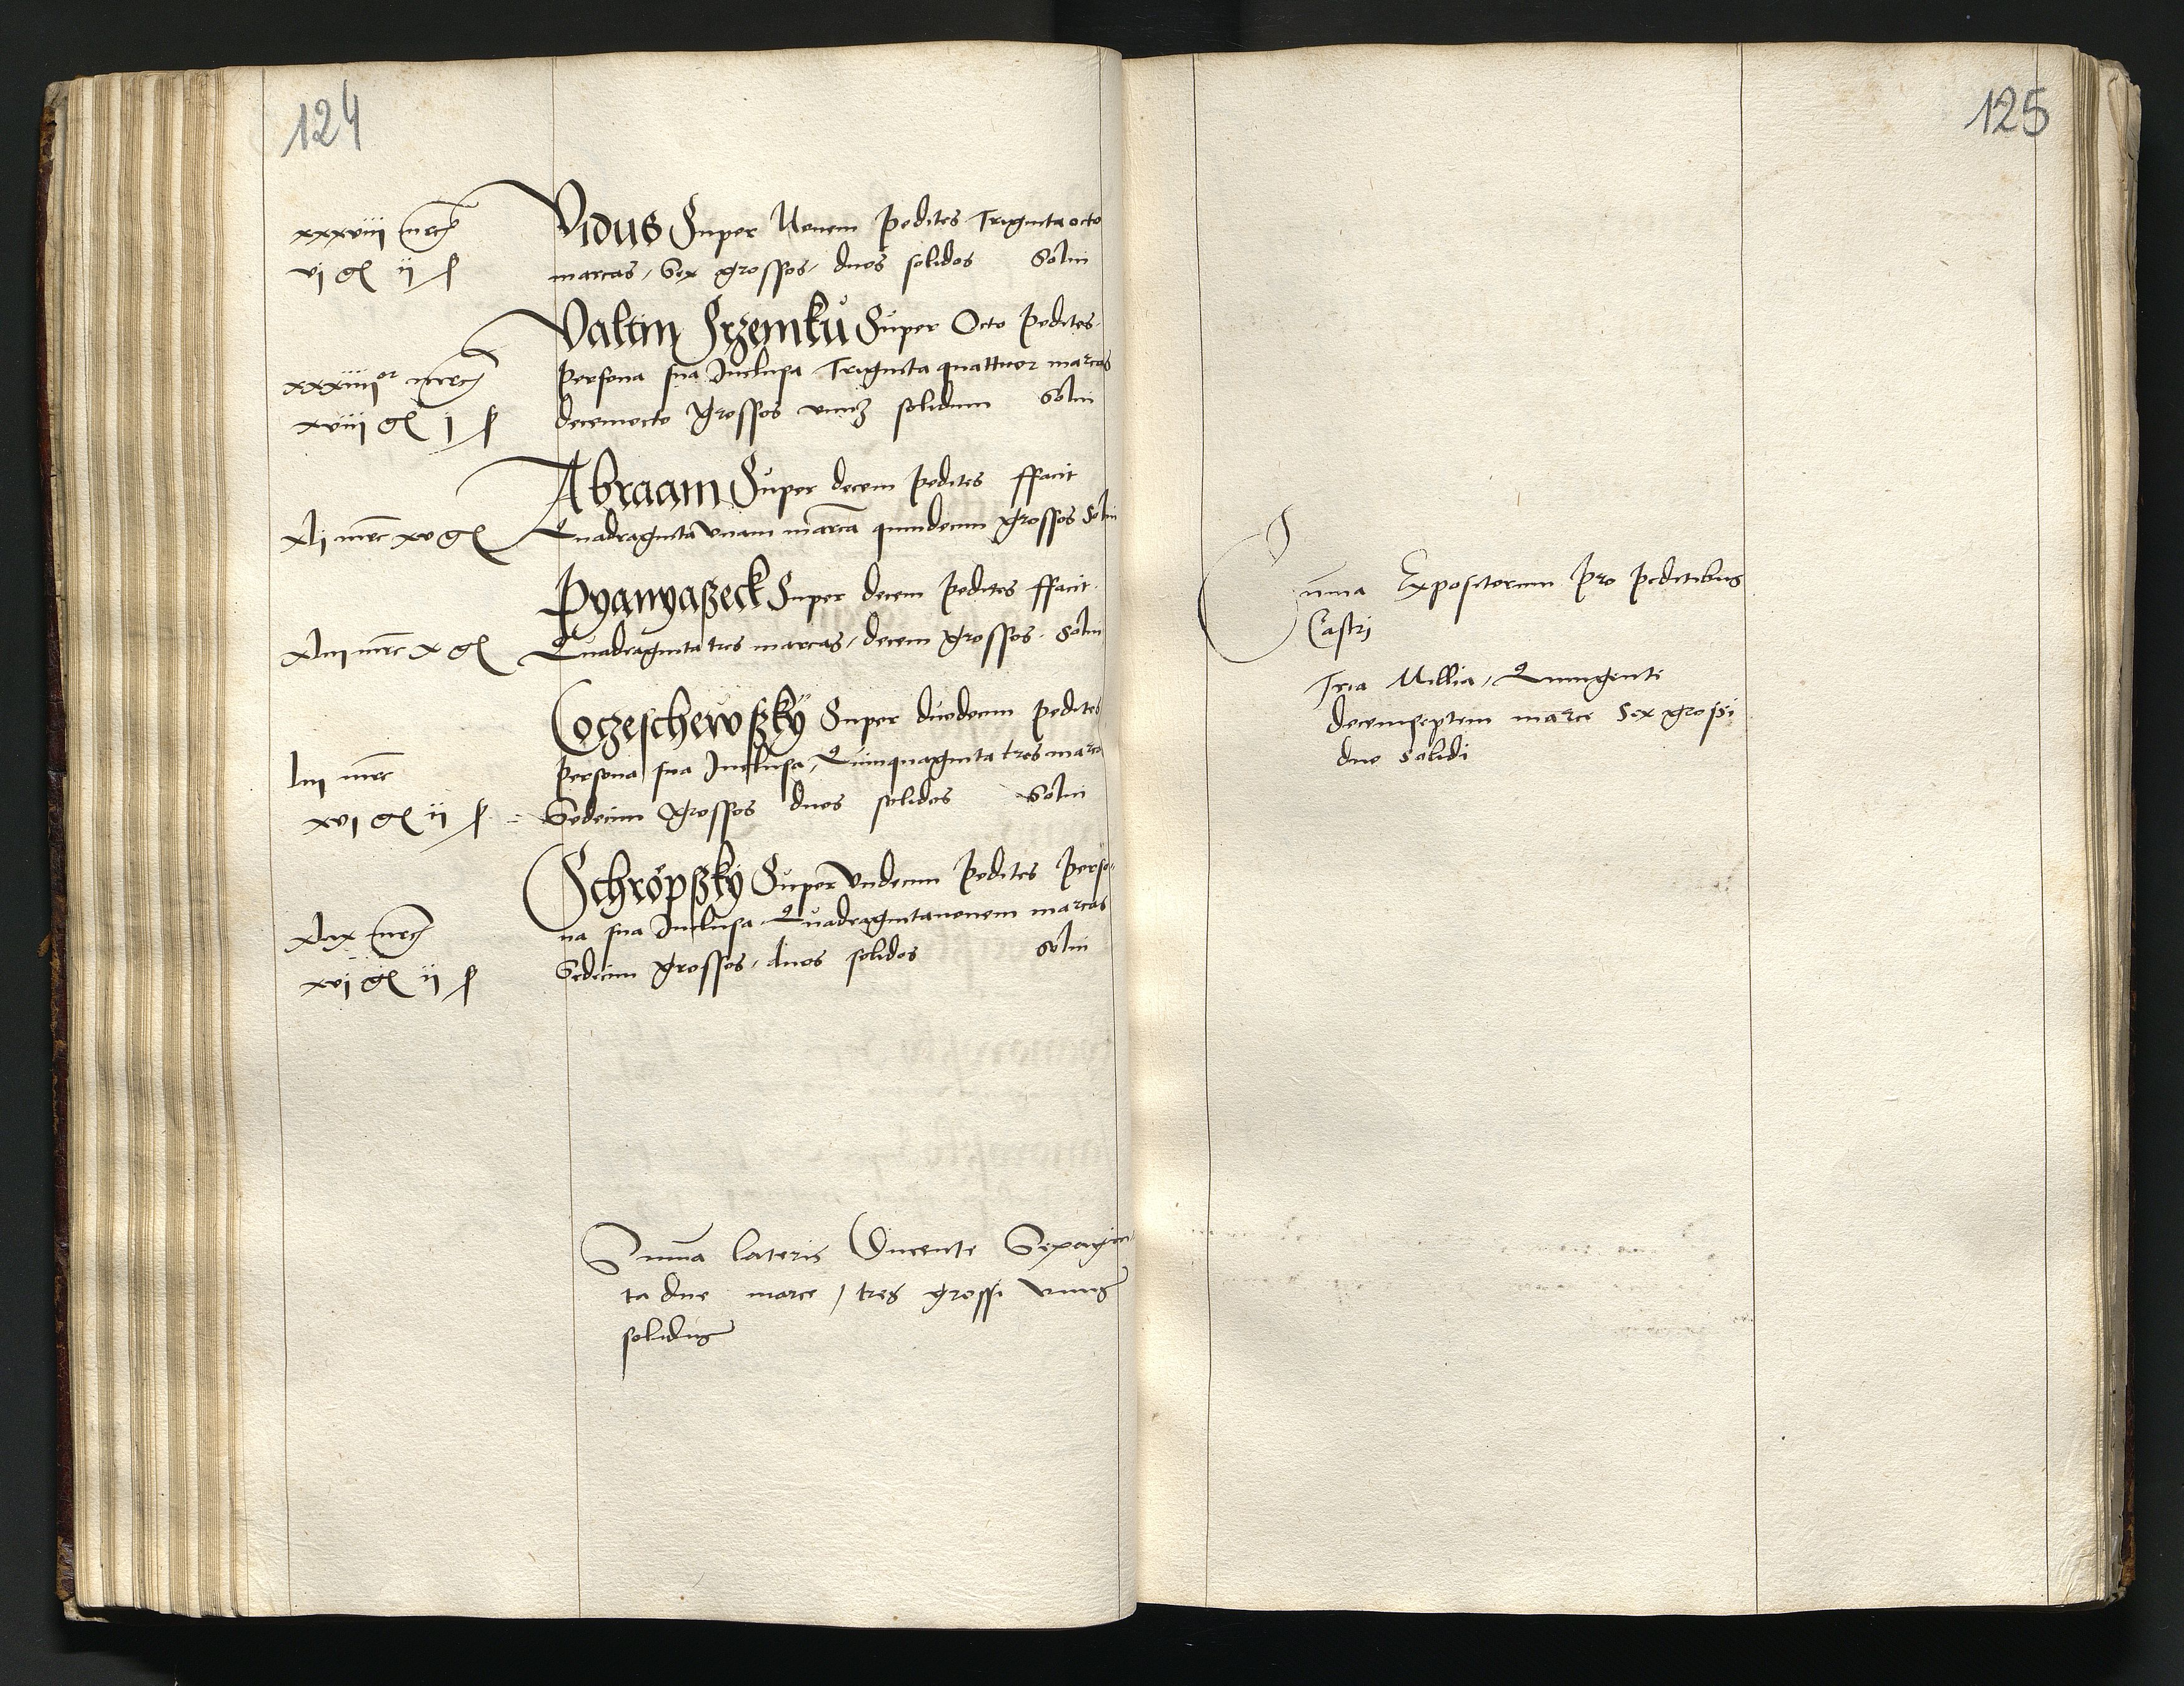 124
xxxviii mrc
vi g ii s
Vidus Super Nouem pedites Triginta octo
marcas, Sex grossos, duos solidos Solui
xxxiiii or mrc
xviii g j s
Valtin Srzemku Super Octo Pedites
persona sua Inclusa Triginta quattuor marcas
decemocto grossos vnum solidum Solui
xlj mrc xv g
Abraam Super decem pedites ffacit
Quadraginta vnam marca quindecim grossos Solui
xliii mrc x g
Pyanyaßeck Super decem pedites ffacit
Quadraginta tres marcas, decem grossos Solui
liii mrc
xvi g ii s
Coczeschewsßkÿ Super duodecim pedites
persona sua Inclusa, Quinquaginta tres marca
Sedecim grossos duos solidos Solui
xlix mrc
xvi g ii s
Schröpßkÿ Super Vndecim Pedites Perso
na sua Inclusa Quadragintanouem marcas
Sedecim grossos, duos solidos Solui
Summa lateris Ducente Sexagin
ta due marce / tres grossi vnus
solidus
125
Summa Expositorum Pro peditibus
Castri
Tria Millia, Quingente
decemseptem marce Sex grossi
duo Solidi